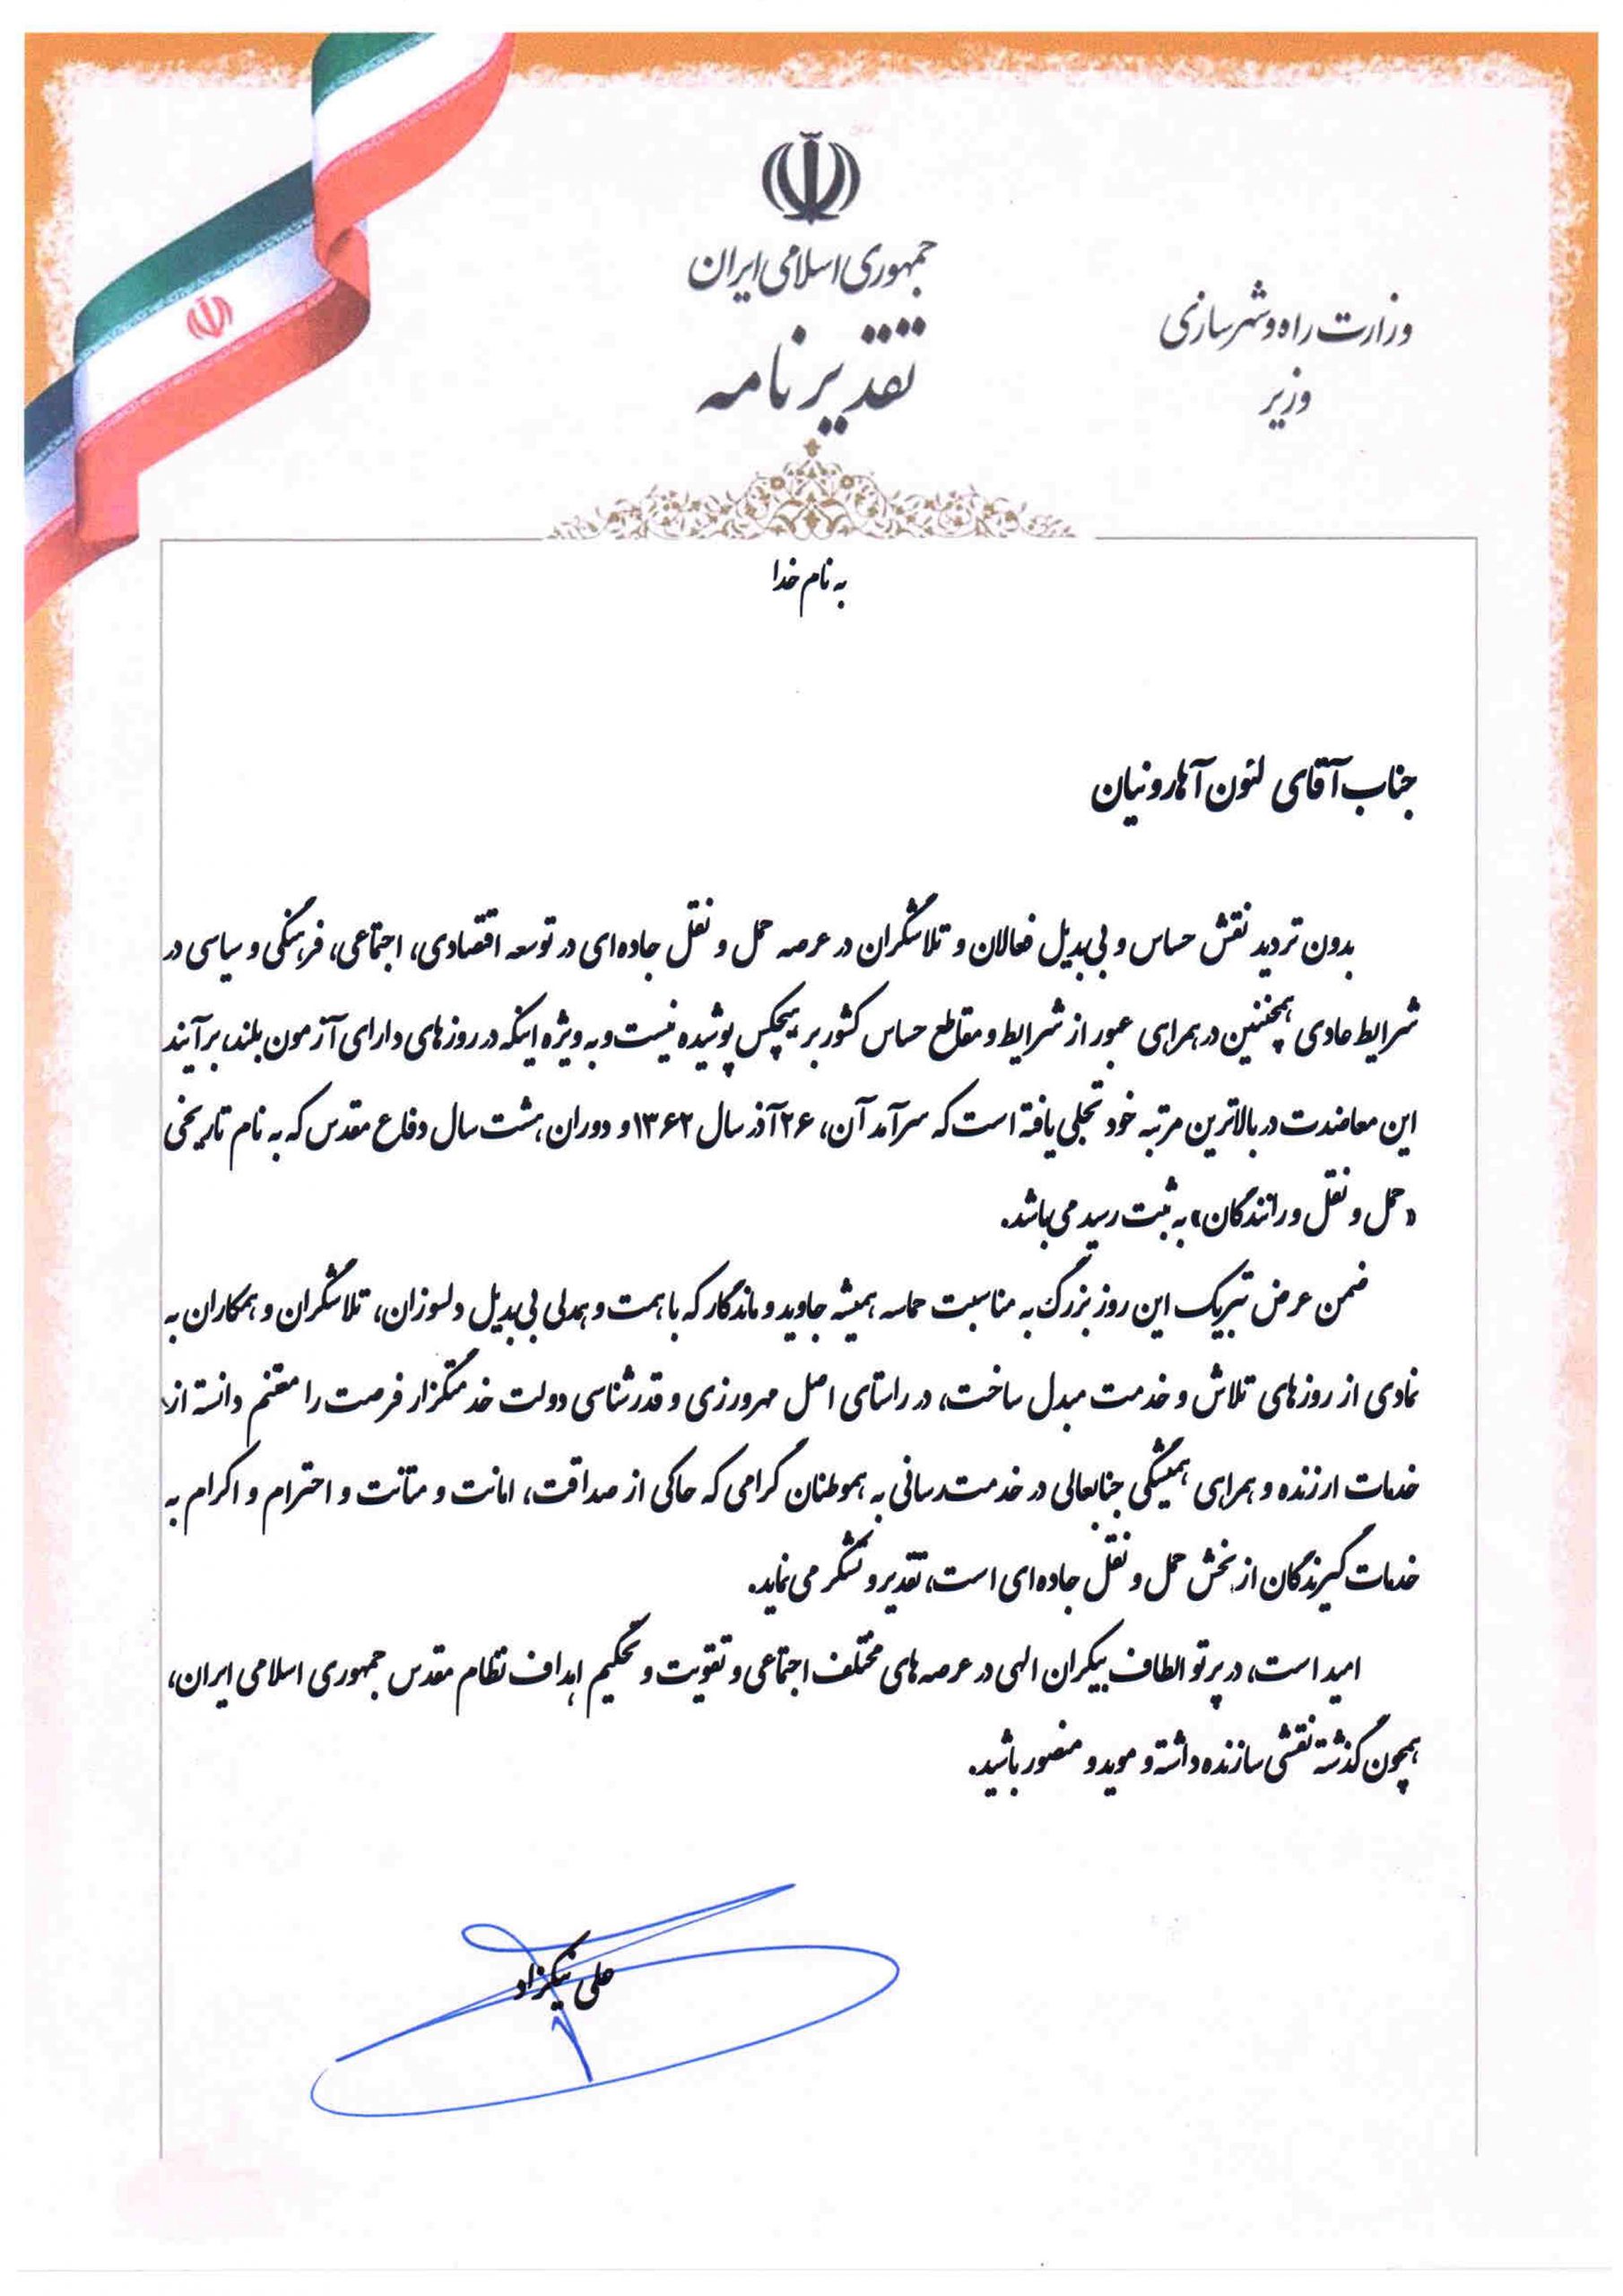 جمهوری اسلامی ایران
تقدیرنامه
وزارت راه و شهرسازی
وزیر
به نام خدا
جناب آقای لئون آهارونیان
بدون تردید نقش حساس و بی‌بدیل فعالان و تلاشگران در عرصه حمل و نقل جاده‌ای در توسعه اقتصادی، اجتماعی، فرهنگی و سیاسی در
شرایط عادی همچنین در همراهی عبور از شرایط و مقاطع حساس کشور بر هیچکس پوشیده نیست و به ویژه اینکه در روزهای دارای آزمون بلند، برآیند
این معاضدت در بالاترین مرتبه خود تجلی یافته است که سرآمد آن، ۲۶ آذر سال ۱۳۶۲ و دوران هشت سال دفاع مقدس که به نام تاریخی
«حمل و نقل و رانندگان» به ثبت رسید می‌باشد.
ضمن عرض تبریک این روز بزرگ به مناسبت حماسه همیشه جاوید و ماندگار که با همت و همدلی بی‌بدیل دلسوزان، تلاشگران و همکاران به
نمادی از روزهای تلاش و خدمت مبدل ساخت، در راستای اصل مهرورزی و قدرشناسی دولت خدمتگزار فرصت را مغتنم دانسته از
خدمات ارزنده و همراهی همیشگی جنابعالی در خدمت‌رسانی به هموطنان گرامی که حاکی از صداقت، امانت و متانت و احترام و اکرام به
خدمات گیرندگان از بخش حمل و نقل جاده‌ای است، تقدیر و تشکر می‌نماید.
امید است، در پرتو الطاف بیکران الهی در عرصه‌های مختلف اجتماعی و تقویت و تحکیم اهداف نظام مقدس جمهوری اسلامی ایران،
همچون گذشته نقشی سازنده داشته و موید و منصور باشید.
علی نیکزاد